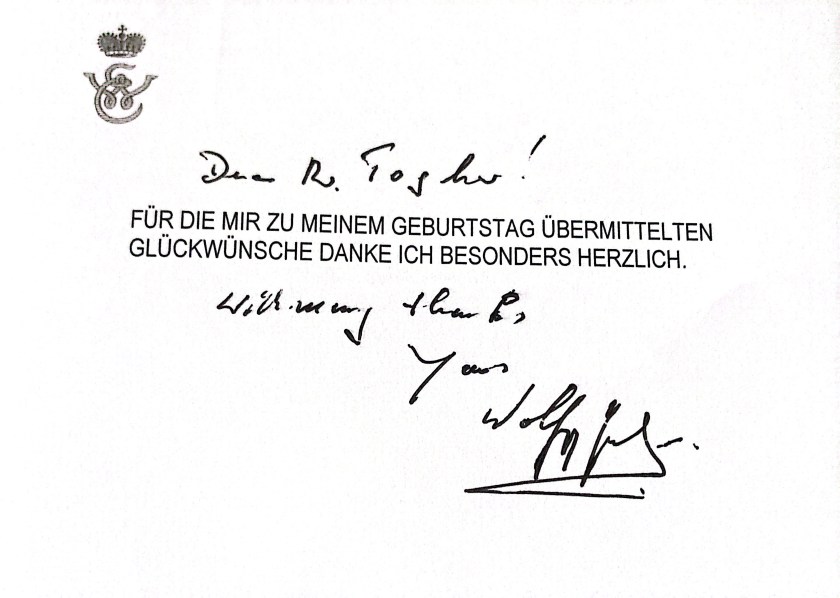 Dear Mr. Togher!
FÜR DIE MIR ZU MEINEM GEBURTSTAG ÜBERMITTELTEN
GLÜCKWÜNSCHE DANKE ICH BESONDERS HERZLICH.
With many thanks
Yours